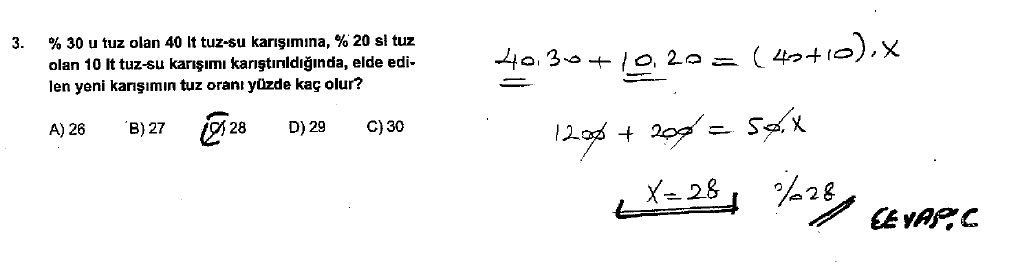 3. % 30 u tuz olan 40 lt tuz-su karışımına, % 20 si tuz
olan 10 lt tuz-su karışımı karıştırıldığında, elde edi-
len yeni karışımın tuz oranı yüzde kaç olur?
A) 26 B) 27 C) 28 D) 29 C) 30
40.30 + 10.20 = (40+10).X
1200 + 200 = 50.X
X = 28 %28
CEVAP: C